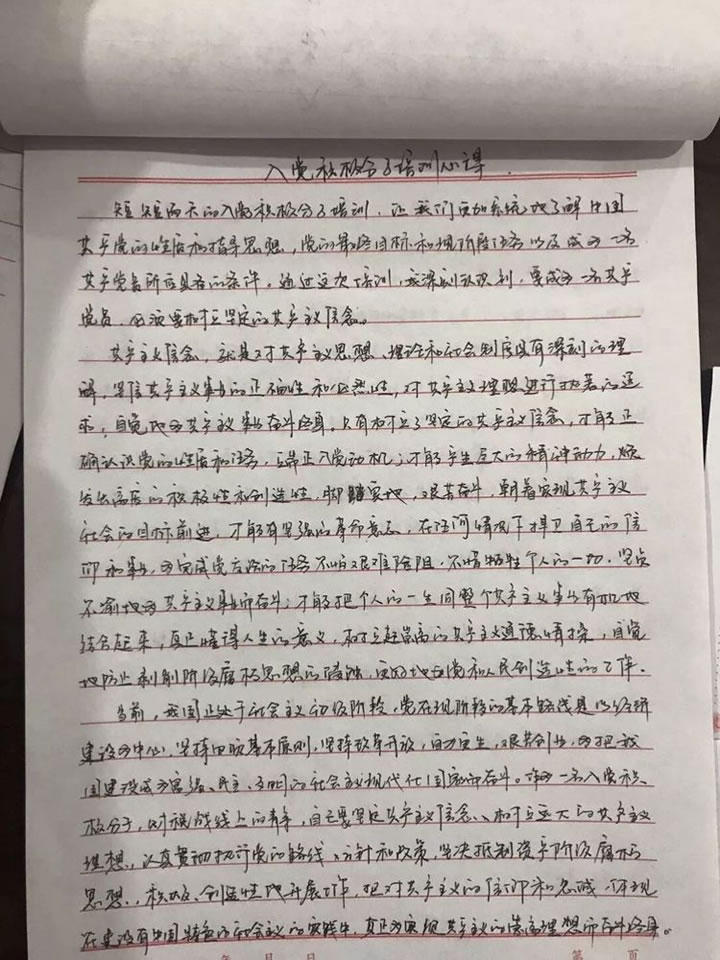 入党积极分子培训心得.
短短两天的入党积极分子培训，让我们更加系统地了解中国
共产党的性质和指导思想，党的最终目标和现阶段任务以及成为一名
共产党员所应具备的条件。通过这次培训，我深刻认识到，要成为一名共产
党员，必须要树立坚定的共产主义信念。
共产主义信念，就是对共产主义思想、理论和社会制度具有深刻的理
解，坚信共产主义事业的正确性和必然性，对共产主义理想进行执著的追
求，自觉地为共产主义事业奋斗终身。只有树立了坚定的共产主义信念，才能正
确认识党的性质和任务，端正入党动机；才能产生巨大的精神动力，焕
发出高度的积极性和创造性，脚踏实地，艰苦奋斗，朝着实现共产主义
社会的目标前进，才能有坚强的革命意志，在任何情况下捍卫自己的信
仰和事业，为完成党交给的任务不怕艰难险阻，不惜牺牲个人的一切，坚贞
不渝地为共产主义事业而奋斗；才能把个人的一生同整个共产主义事业有机地
结合起来，真正懂得人生的意义，树立起崇高的共产主义道德情操，自觉
地防止剥削阶级腐朽思想的侵蚀，更好地为党和人民创造性的工作.
当前，我国正处于社会主义初级阶段，党在现阶段的基本路线是以经济
建设为中心，坚持四项基本原则，坚持改革开放，自力更生，艰苦创业，为把我
国建设成为富强、民主、文明的社会主义现代化国家而奋斗。作为一名入党积
极分子，财税战线上的青年，自己要坚定共产主义信念、树立远大的共产主义
理想，认真贯彻执行党的路线、方针和政策，坚决抵制资产阶级腐朽
思想，积极、创造性地开展工作，把对共产主义的信仰和忠诚体现
在建设有中国特色的社会主义的实践中，真正为实现共产主义的崇高理想而奋斗终身。
年 月 日 第 页